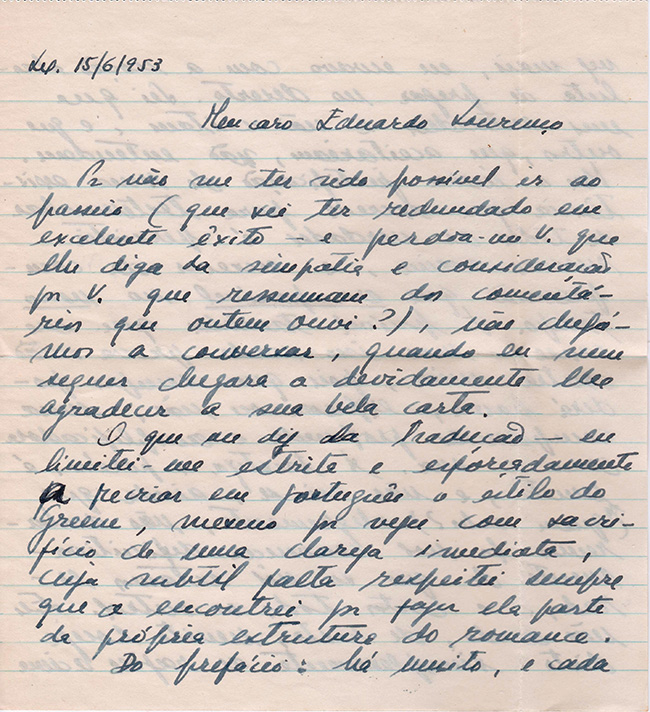 Lx. 15/6/953
Meu caro Eduardo Lourenço
Pr não me ter sido possível ir ao
passeio (que sei ter redundado em
excelente êxito — e perdoa-me V. que
lhe diga da simpatia e consideração
pr V. que ressumam dos comentá-
rios que ontem ouvi?), não chegá-
mos a conversar, quando eu nem
sequer chegara a devidamente lhe
agradecer a sua bela carta.
O que me diz da tradução — eu
limitei-me estrita e esforçadamente
a recriar em português o estilo do
Greene, mesmo pr vezes com sacri-
fício de uma clareza imediata,
cuja subtil falta respeitei sempre
que a encontrei pr fazer ela parte
da própria estrutura do romance.
Do prefácio: há muito, e cada